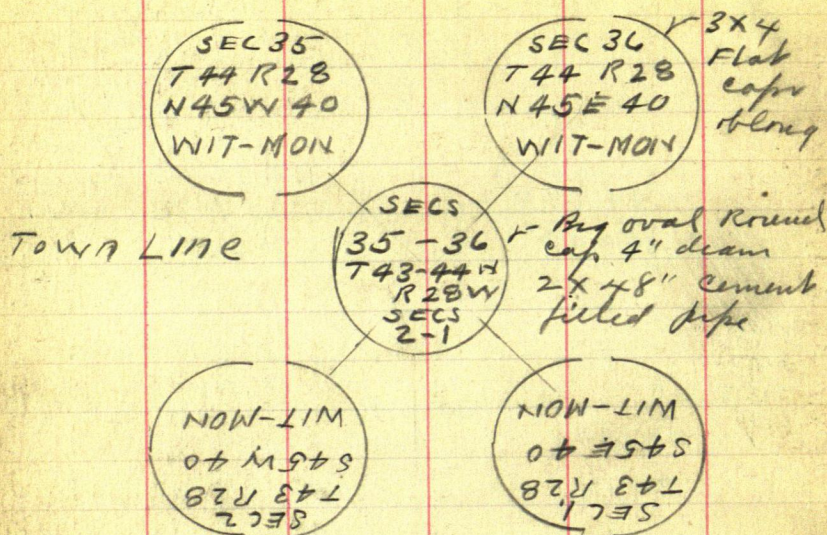 SEC 35
T44 R28
N45W 40
WIT-MON
SEC 36
T44 R28
N45E 40
WIT-MON
3X4
Flat
caps
oblong
Town Line
SECS
35-36
T43-44N
R28W
SECS
2-1
Big oval Round
cap 4" diam
2 X 48" cement
filled pipe
WIT-MON
S45W 40
T43 R28
SEC 2
WIT-MON
S45E 40
T43 R28
SEC 1